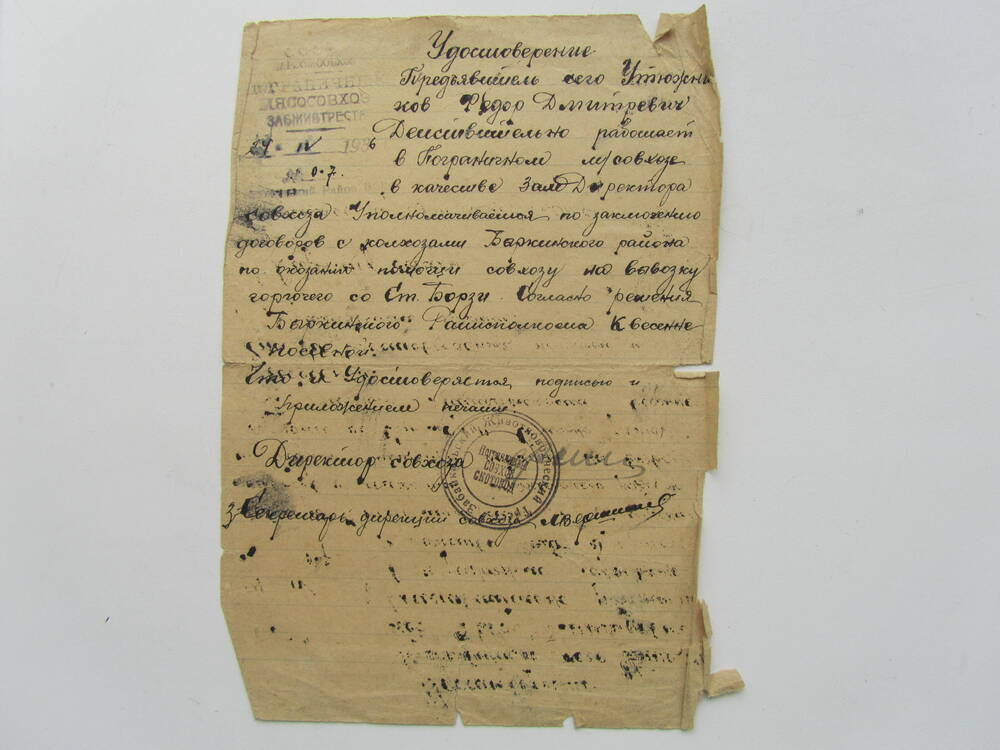 Удостоверение
МЯСОСОВХОЗ
ЗАБЖИВТРЕСТ
29 IV 1936
Предъявитель сего Утюжни
ков Федор Дмитревич
Деиствительно работает
в Пограничном м/совхозе
в качестве Зам Директора
совхоза Уполномачивается по заключению
договоров с колхозами Быркинского района
по оказании помощи совхозу на вывозку
горючего со Ст. Борзи. Согласно решения
Быркинского Раийсполкома К весенне
посевной.
Что и Удостоверяется подписью и
приложением печати.
Директор совхоза
Секретарь дирекции совхоза
Забайкальский Животноводческий Трест
Пограничный
СОВХОЗ
СКОТОВОД